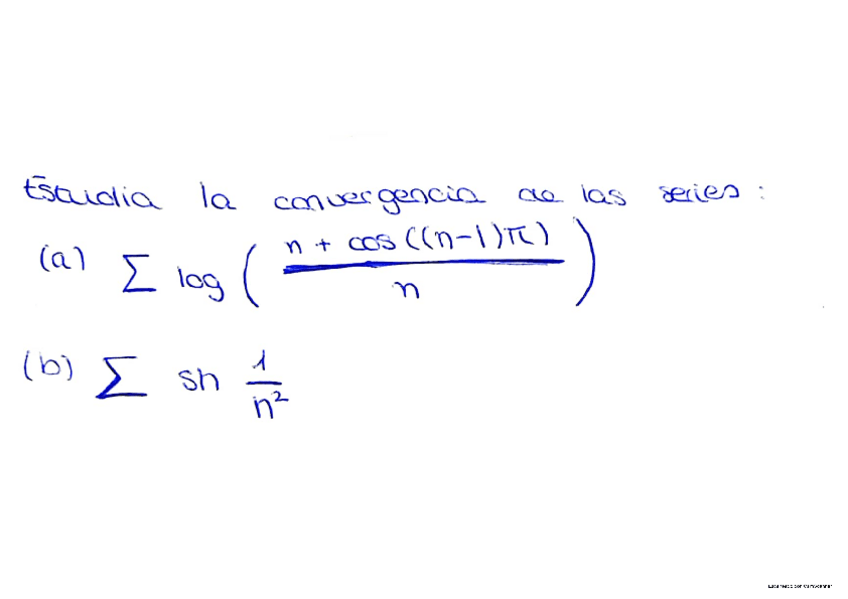 Estudia la convergencia de las series:
(a) Σ log ( n + cos((n-1)π) / n )
(b) Σ sh 1/n²